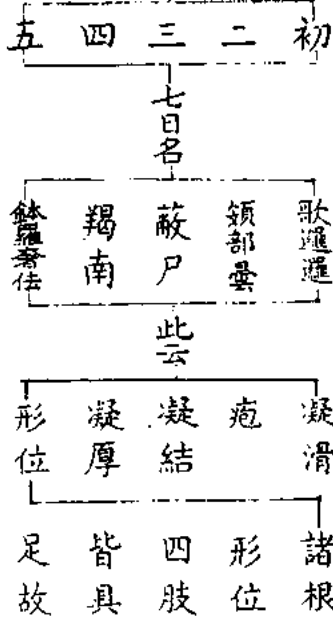 初 二 三 四 五
七日名
歌邏邏
頞部曇
蔽尸
羯南
鉢羅奢佉
此云
凝滑
疱
凝結
凝厚
形位
諸根
形位
四肢
皆具
足故